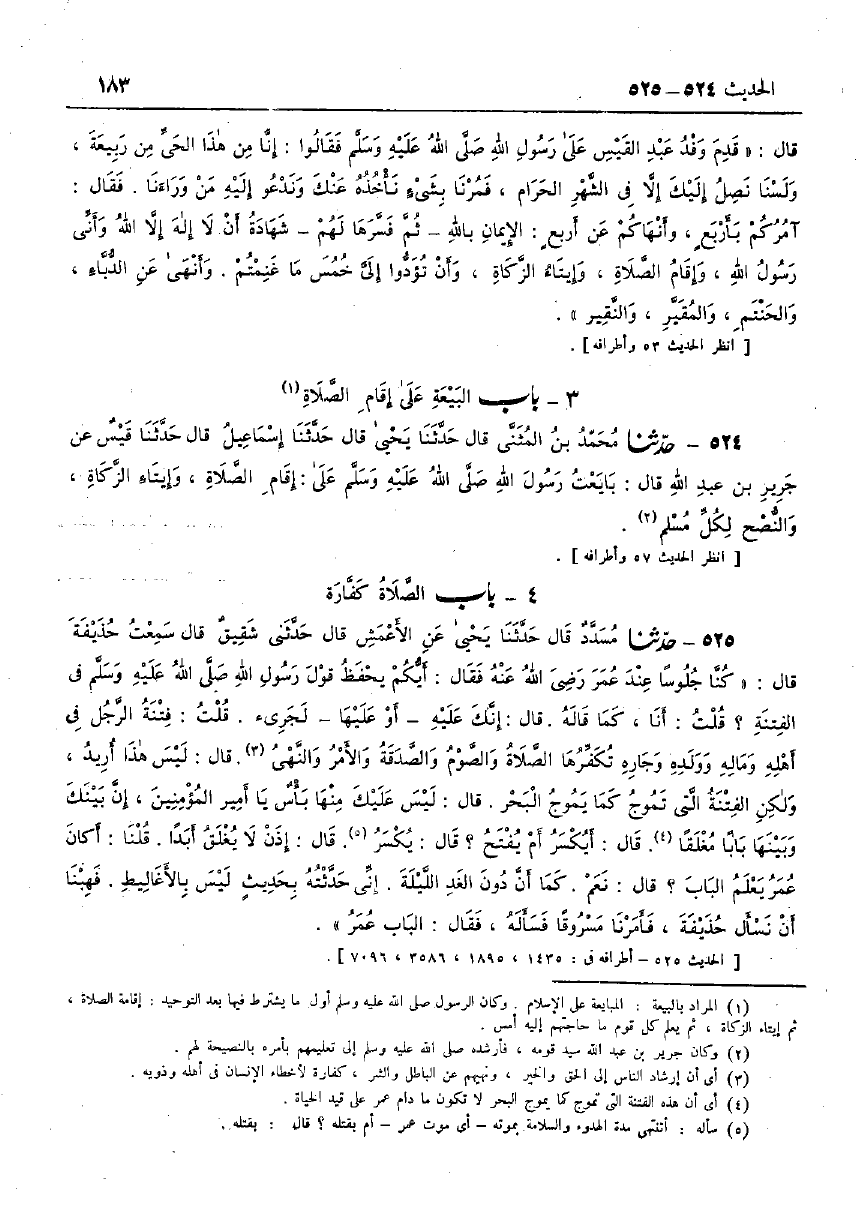 الحديث ٥٢٤ – ٥٢٥
١٨٣
قال : « قَدِمَ وَفْدُ عَبْدِ القَيْسِ عَلَىٰ رَسُولِ اللهِ صَلَّى اللهُ عَلَيْهِ وَسَلَّم فَقَالُوا : إنَّا مِن هٰذَا الحَيِّ مِن رَبِيعَةَ ،
وَلَسْنَا نَصِلُ إلَيْكَ إلَّا فِى الشَّهْرِ الحَرَامِ ، فَمُرْنَا بِشَىْءٍ نَأْخُذُهُ عَنْكَ وَنَدْعُو إلَيْهِ مَنْ وَرَاءَنَا . فَقَال :
آمُرُكُمْ بِأَرْبَعٍ ، وأَنْهَاكُمْ عَن أربعٍ : الإيمَانِ باللهِ – ثُمَّ فَسَّرَهَا لَهُمْ – شَهَادَةُ أنْ لَا إلهَ إلَّا اللهُ وَأَنِّى
رَسُولُ اللهِ ، وَإقَامُ الصَّلَاةِ ، وَإيتَاءُ الزَّكَاةِ ، وَأَنْ تُؤَدُّوا إلىَّ خُمُسَ مَا غَنِمْتُمْ . وَأَنْهَىٰ عَنِ الدُّبَّاءِ ،
وَالحَنْتَمِ ، وَالمُقَيَّرِ ، وَالنَّقِيرِ » .
[ انظر الحديث ٥٣ وأطرافه ] .
٣ – باب البَيْعَةِ عَلَىٰ إقَامِ الصَّلَاةِ (١)
٥٢٤ – حدّثنا مُحَمَّدُ بنُ المُثَنَّى قال حَدَّثَنَا يَحْيىٰ قال حَدَّثَنَا إسْمَاعِيلُ قال حَدَّثَنَا قَيْسٌ عن
جَرِيرِ بن عبدِ اللهِ قال : بَايَعْتُ رَسُولَ اللهِ صَلَّى اللهُ عَلَيْهِ وَسَلَّم عَلَىٰ : إقَامِ الصَّلَاةِ ، وَإيتَاءِ الزَّكَاةِ ،
وَالنُّصْحِ لِكُلِّ مُسْلِمٍ (٢) .
[ انظر الحديث ٥٧ وأطرافه ] .
٤ – باب الصَّلَاةُ كَفَّارَة
٥٢٥ – حدّثنا مُسَدَّدٌ قَال حَدَّثَنَا يَحْيىٰ عَنِ الأَعْمَشِ قال حَدَّثَنى شَقِيقٌ قال سَمِعْتُ حُذَيْفَةَ
قال : « كُنَّا جُلُوسًا عِنْدَ عُمَرَ رَضِىَ اللهُ عَنْهُ فَقَال : أَيُّكُمْ يحْفَظُ قَوْلَ رَسُولِ اللهِ صَلَّى اللهُ عَلَيْهِ وَسَلَّم فى
الفِتنَةِ ؟ قُلْتُ : أنَا ، كَمَا قَالَهُ . قال : إنَّكَ عَلَيْهِ – أَوْ عَلَيْهَا – لَجَرِىء . قُلْتُ : فِتْنَةُ الرَّجُلِ فِى
أَهْلِهِ وَمَالِهِ وَوَلَدِهِ وَجَارِهِ تُكَفِّرُهَا الصَّلَاةُ وَالصَّوْمُ وَالصَّدَقَةُ وَالأَمْرُ وَالنَّهْىُ (٣) . قال : لَيْسَ هٰذَا أُرِيدُ ،
وَلكِنِ الفِتْنَةُ الَّتى تَمُوجُ كَمَا يَمُوجُ الْبَحْر . قال : لَيْسَ عَلَيْكَ مِنْهَا بَأْسٌ يَا أَمِير المُؤْمِنِينَ ، إنَّ بَيْنَكَ
وَبَيْنَهَا بَابًا مُغْلَقًا (٤). قال : أَيُكْسَرُ أمْ يُفْتَحُ ؟ قَال : يُكْسَرُ (٥). قَال : إذَنْ لَا يُغْلَقُ أَبَدًا . قُلْنَا : أَكانَ
عُمَرُ يَعْلَمُ البَابَ ؟ قال : نَعَمْ . كَمَا أنَّ دُونَ الغَدِ اللَّيْلَةَ . إنِّى حَدَّثْتُهُ بِحَدِيثٍ لَيْسَ بِالأَغَالِيطِ . فَهِبْنَا
أَنْ نَسْأَلَ حُذَيْفَةَ ، فَأَمَرْنَا مَسْرُوقًا فَسَأَلَهُ ، فَقَال : البَاب عُمَرُ » .
[ الحديث ٥٢٥ – أطرافه فى : ١٤٣٥ ، ١٨٩٥ ، ٣٥٨٦ ، ٧٠٩٦ ] .
(١) المراد بالبيعة : المبايعة على الإسلام . وكان الرسول صلى الله عليه وسلم أول ما يشترط فيها بعد التوحيد : إقامة الصلاة ،
ثم إيتاء الزكاة ، ثم يعلم كل قوم ما حاجتهم إليه أمس .
(٢) وكان جرير بن عبد الله سيد قومه ، فأرشده صلى الله عليه وسلم إلى تعليمهم بأمره بالنصيحة لهم .
(٣) أى أن إرشاد الناس إلى الحق والخير ، ونهيهم عن الباطل والشر ، كفارة لأخطاء الإنسان فى أهله وذويه .
(٤) أى أن هذه الفتنة التى تموج كما يموج البحر لا تكون ما دام عمر على قيد الحياة .
(٥) سأله : أتنتهى مدة الهدوء والسلامة بموته – أى موت عمر – أم بقتله ؟ قال : بقتله .